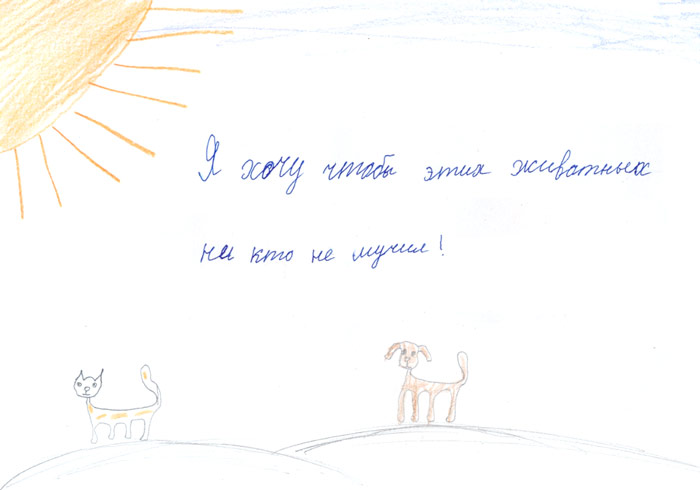 Я хочу чтобы этих живатных
ни кто не мучил!